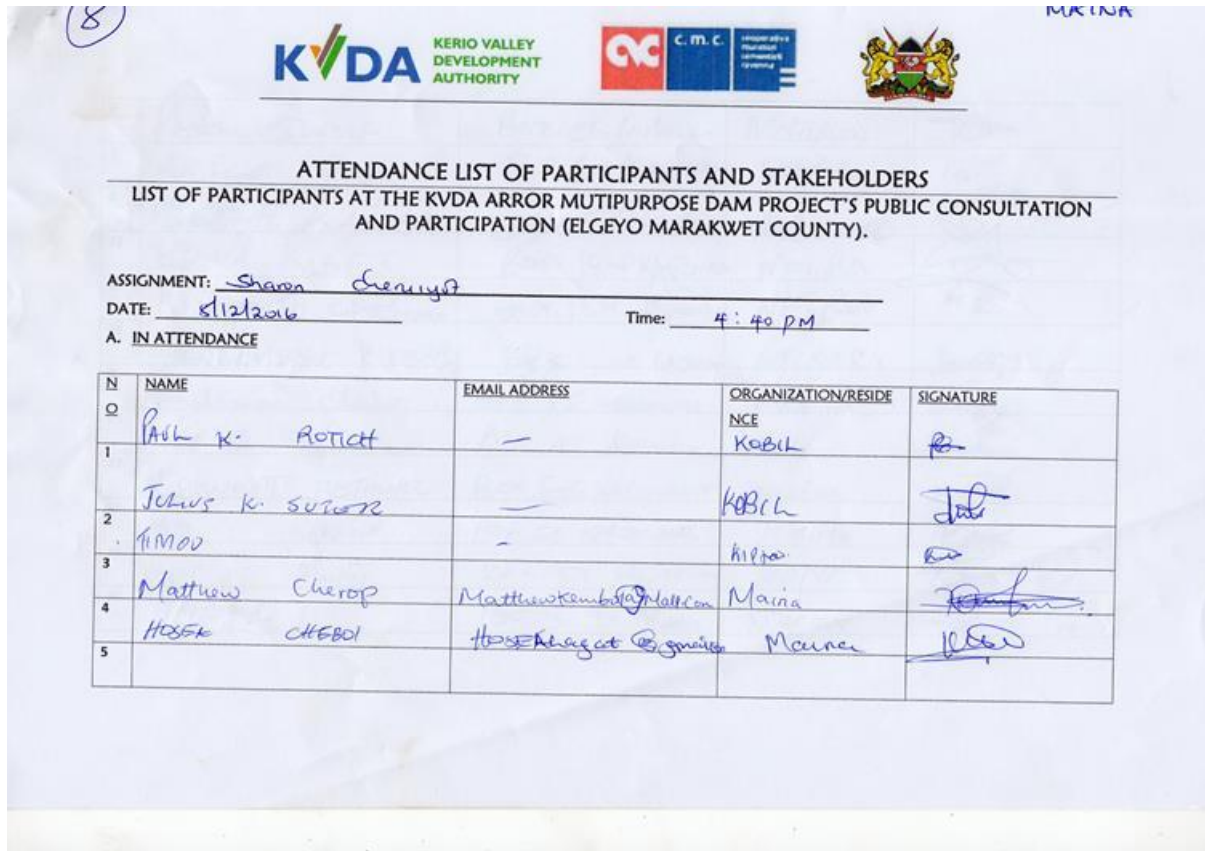 8
MAINA
KVDA KERIO VALLEY
DEVELOPMENT
AUTHORITY
c. m. c.
ATTENDANCE LIST OF PARTICIPANTS AND STAKEHOLDERS
LIST OF PARTICIPANTS AT THE KVDA ARROR MUTIPURPOSE DAM PROJECT'S PUBLIC CONSULTATION
AND PARTICIPATION (ELGEYO MARAKWET COUNTY).
ASSIGNMENT: Sharon
DATE: 5/12/2016 Time: 4:40 PM
A. IN ATTENDANCE
NO NAME EMAIL ADDRESS ORGANIZATION/RESIDENCE SIGNATURE
1 PAUL K. ROTICH — KOBIL
2 JULIUS K. — KOBIL
3 TIMOU -
4 Matthew Cherop Maina
5 HOSEA CHEBOI Maina